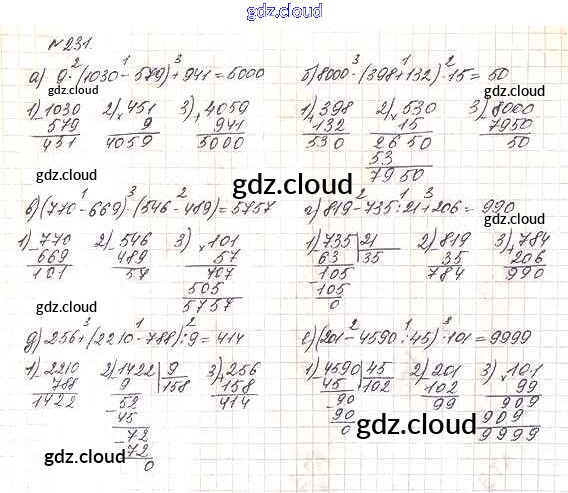 gdz.cloud
№231.
а) 9·(1030-579)+941=5000
2 1 3
1) 1030 - 579 = 451
2) 451 × 9 = 4059
3) 4059 + 941 = 5000
б) 8000-(398+132)·15=50
3 1 2
1) 398 + 132 = 530
2) 530 × 15
2650
53
7950
3) 8000 - 7950 = 50
в) (770-669)·(546-489)=5757
1 3 2
1) 770 - 669 = 101
2) 546 - 489 = 57
3) 101 × 57
707
505
5757
г) 819-735:21+206=990
2 1 3
1) 735 | 21
63 35
105
105
0
2) 819 - 35 = 784
3) 784 + 206 = 990
д) 256+(2210-788):9=414
3 1 2
1) 2210 - 788 = 1422
2) 1422 | 9
9 158
52
45
72
72
0
3) 256 + 158 = 414
е) (201-4590:45)·101=9999
2 1 3
1) 4590 | 45
45 102
90
90
0
2) 201 - 102 = 99
3) 101 × 99
909
909
9999
gdz.cloud
gdz.cloud
gdz.cloud
gdz.cloud
gdz.cloud
gdz.cloud
gdz.cloud
gdz.cloud
gdz.cloud
gdz.cloud